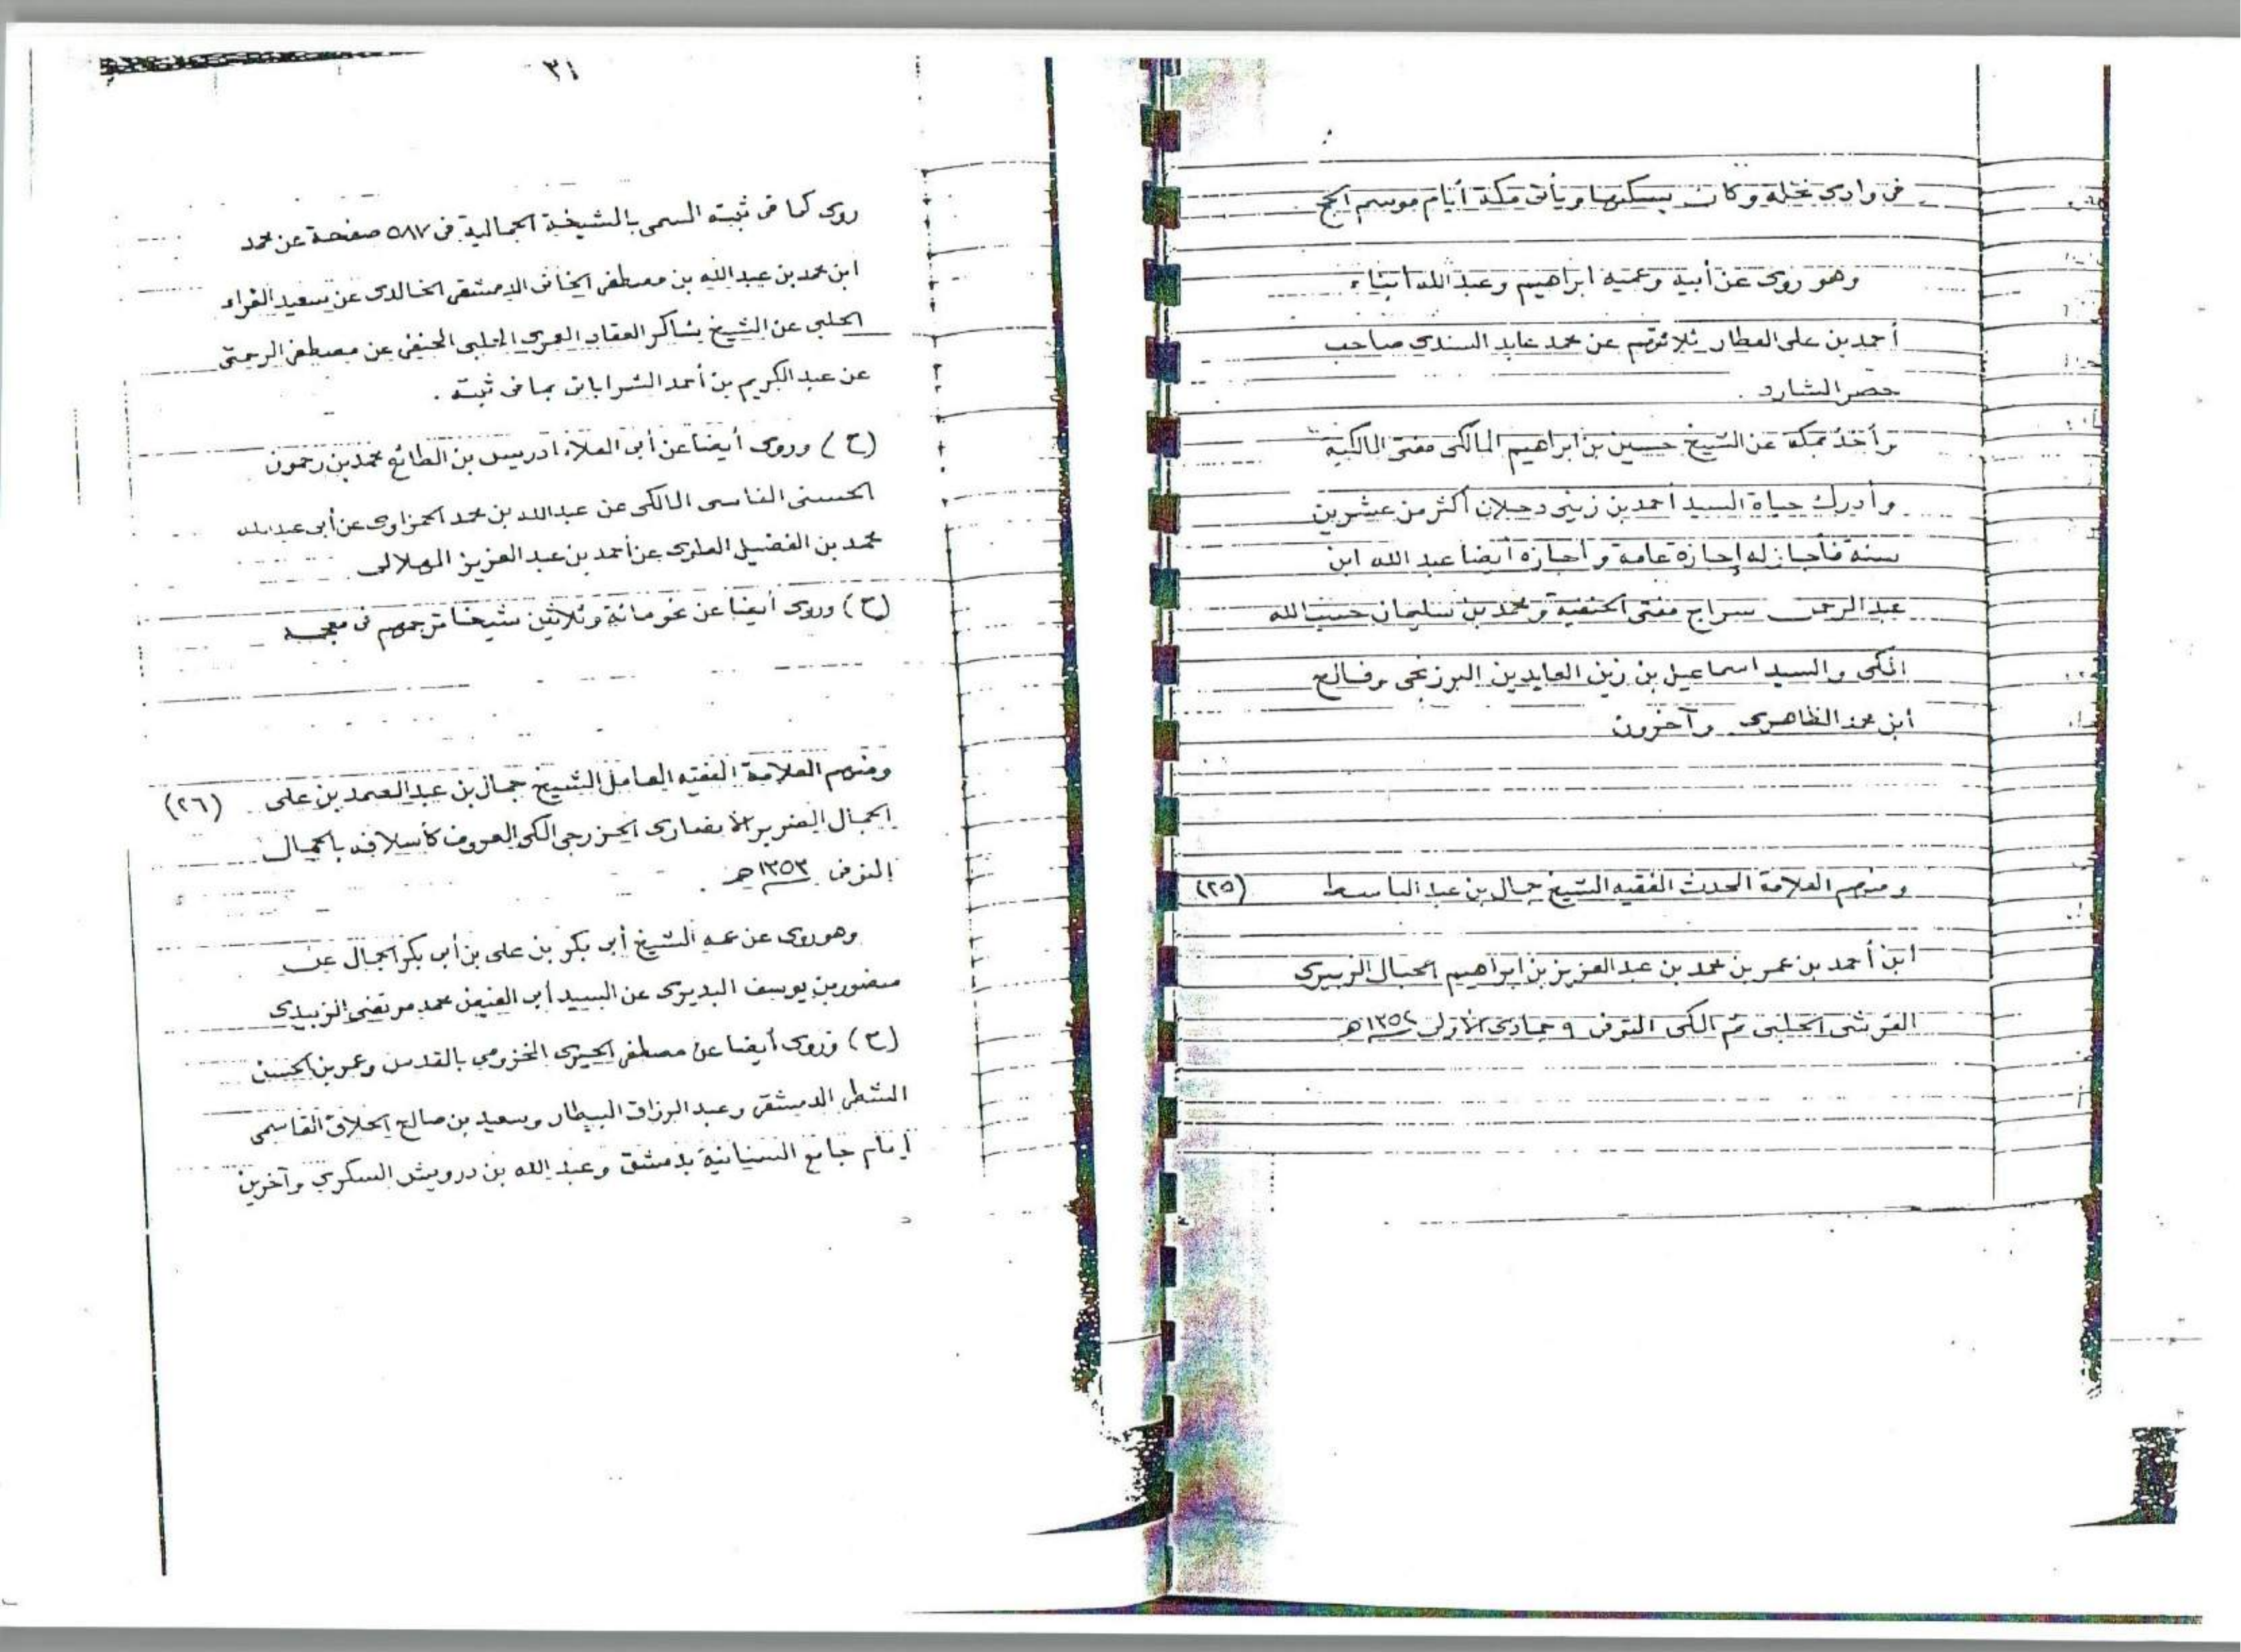 فى وادى نخله وكان يسكنها ويأتى مكة أيام موسم الحج
وهو روى عن أبيه وعميه ابراهيم وعبد الله أبناء
أحمد بن على العطار ثلاثتهم عن محمد عابد السندى صاحب
حصر الشارد .
وأخذ بمكة عن الشيخ حسين بن ابراهيم المالكى مفتى المالكية
وأدرك حياة السيد أحمد بن زينى دحلان أكثر من عشرين
سنة فأجاز له إجازة عامة وأجازه أيضا عبد الله ابن
عبد الرحمن سراج مفتى الحنفية ومحمد بن سليمان حسب الله
المكى والسيد اسماعيل بن زين العابدين البرزنجى وفالح
ابن محمد الظاهرى وآخرون
ومنهم العلامة المحدث الفقيه الشيخ جمال بن عبد الباسط (٢٥)
ابن أحمد بن عمر بن محمد بن عبد العزيز بن ابراهيم الحبال الزبيرى
القرشى الحلبى ثم المكى المتوفى ٩ جمادى الأولى ١٣٥٤ هـ
٣١
روى كما فى ثبته المسمى بالشيخة الجمالية فى ٥٨٧ صفحة عن محمد
ابن محمد بن عبدالله بن مصطفى الخانى الدمشقى الخالدى عن سعيد الفراء
الحلبى عن الشيخ شاكر العقاد العمرى الحلبى الحنفى عن مصطفى الرحمتى
عن عبد الكريم بن أحمد الشراباتى بما فى ثبته .
(ح) وروى أيضا عن أبى العلاء ادريس بن الطائع محمد بن رحمون
الحسنى الفاسى المالكى عن عبدالله بن محمد الحمزاوى عن أبى عبدالله
محمد بن الفضيل العلوى عن أحمد بن عبد العزيز الهلالى
(ح) وروى أيضا عن نحو مائة وثلاثين شيخا ترجمهم فى معجمه
ومنهم العلامة الفقيه العامل الشيخ جمال بن عبد الصمد بن على (٢٦)
الجمال الضرير الأنصارى الخزرجى المكى المعروف كأسلافه بالجمال
المتوفى ١٣٥٣ هـ .
وهو روى عن عمه الشيخ أبى بكر بن على بن أبى بكر الجمال عن
منصور بن يوسف البديرى عن السيد أبى الفيض محمد مرتضى الزبيدى
(ح) وروى أيضا عن مصطفى الحيرى المخزومى بالقدس وعمر بن الحسن
الشطى الدمشقى وعبد الرزاق البيطار وسعيد بن صالح الحلاق القاسمى
إمام جامع السنانية بدمشق وعبد الله بن درويش السكري وآخرين